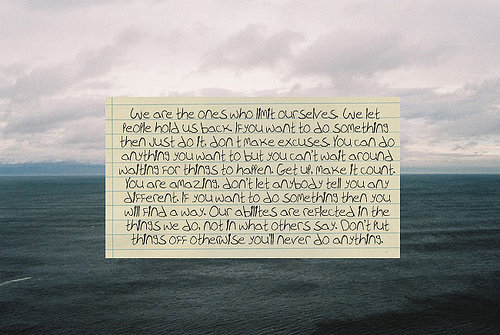 We are the ones who limit ourselves. We let
people hold us back. If you want to do something
then just do it, don't make excuses. You can do
anything you want to but you can't wait around
waiting for things to happen. Get up, make it count.
You are amazing, don't let anybody tell you any
different. If you want to do something then you
will find a way. Our abilites are reflected in the
things we do, not in what others say. Don't put
things off otherwise you'll never do anything.